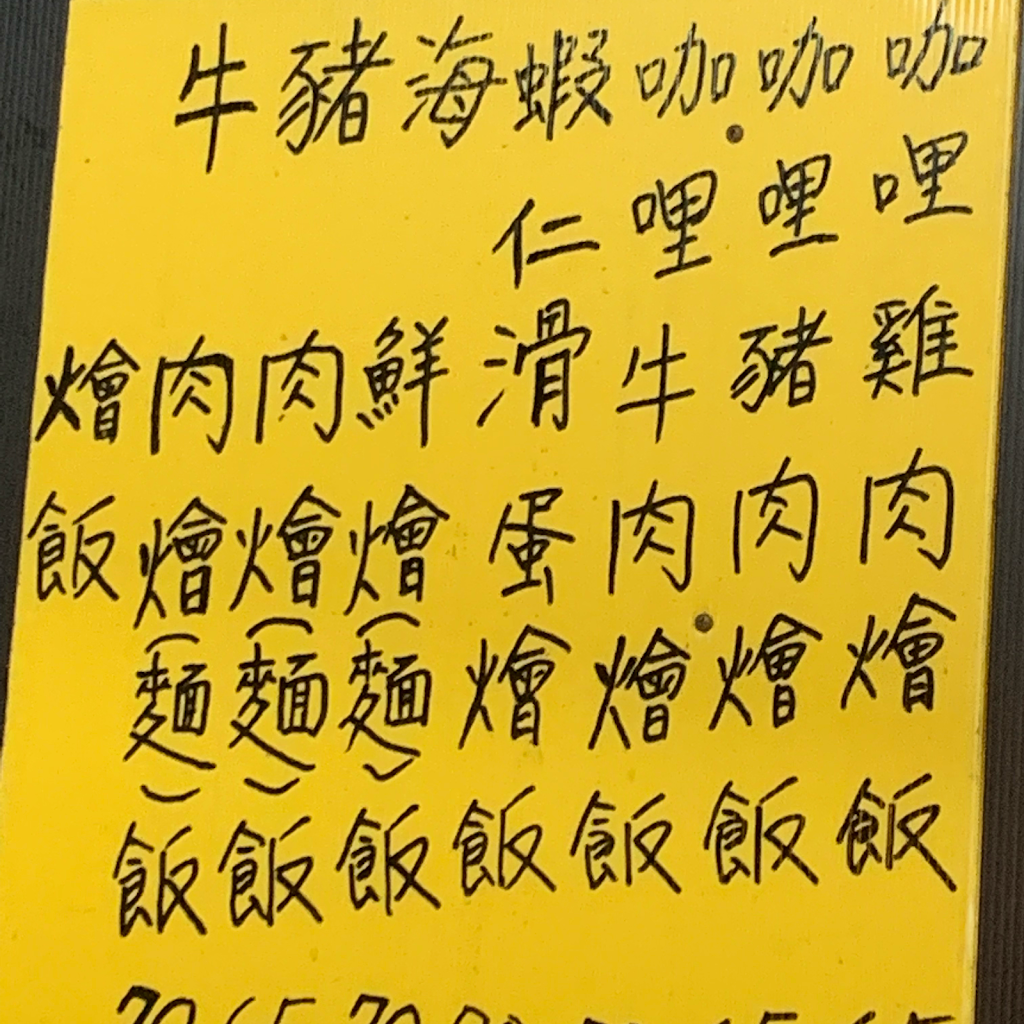 咖哩雞肉燴飯
咖哩豬肉燴飯
咖哩牛肉燴飯
蝦仁滑蛋燴飯
海鮮燴(麵)飯
豬肉燴(麵)飯
牛肉燴(麵)飯
燴飯